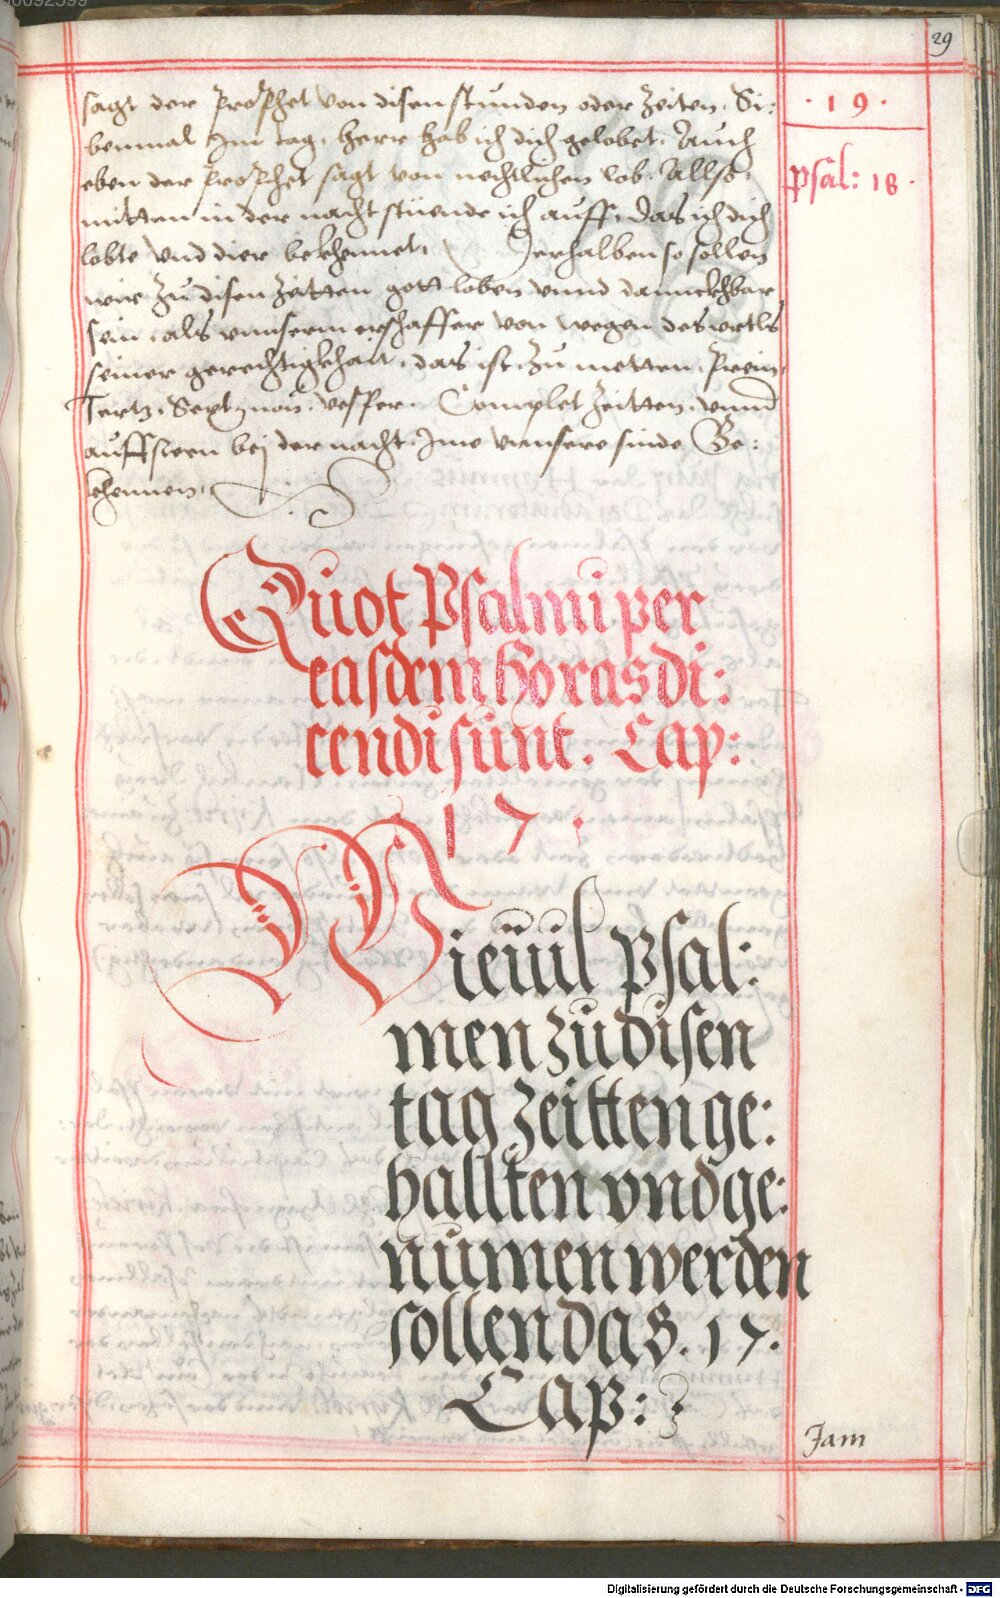 29
. 19 .
Psal: 18 .
sagt der Prophet von disen stunden oder zeiten. Si:
benmal Im tag, herr hab ich dich gelobet. Auch
eben der Prophet sagt von nechtlichen lob. Allso
mitten in der nacht stüende ich auff, das ich dich
lobte vnd dier bekhennet. Derhalben so sollen
wir zu disen zeitten gott loben vnnd danckhbar
sein, als vnnserm erschaffer von wegen des vrtls
seiner gerechtigkhait, das ist, zu metten, Preim,
Tertz, Sext, non, vesper. Complet zeitten, vnnd
auffsteen bej der nacht, Ime vnnsere sinde Be:
khennen,
Quot Psalmi per
easdem horas di:
cendi sunt. Cap:
17 .
Wieuil Psal:
men zu disen
tag zeitten ge:
hallten vnd ge:
numen werden
sollen das. 17.
Cap:
Jam
Digitalisierung gefördert durch die Deutsche Forschungsgemeinschaft - DFG